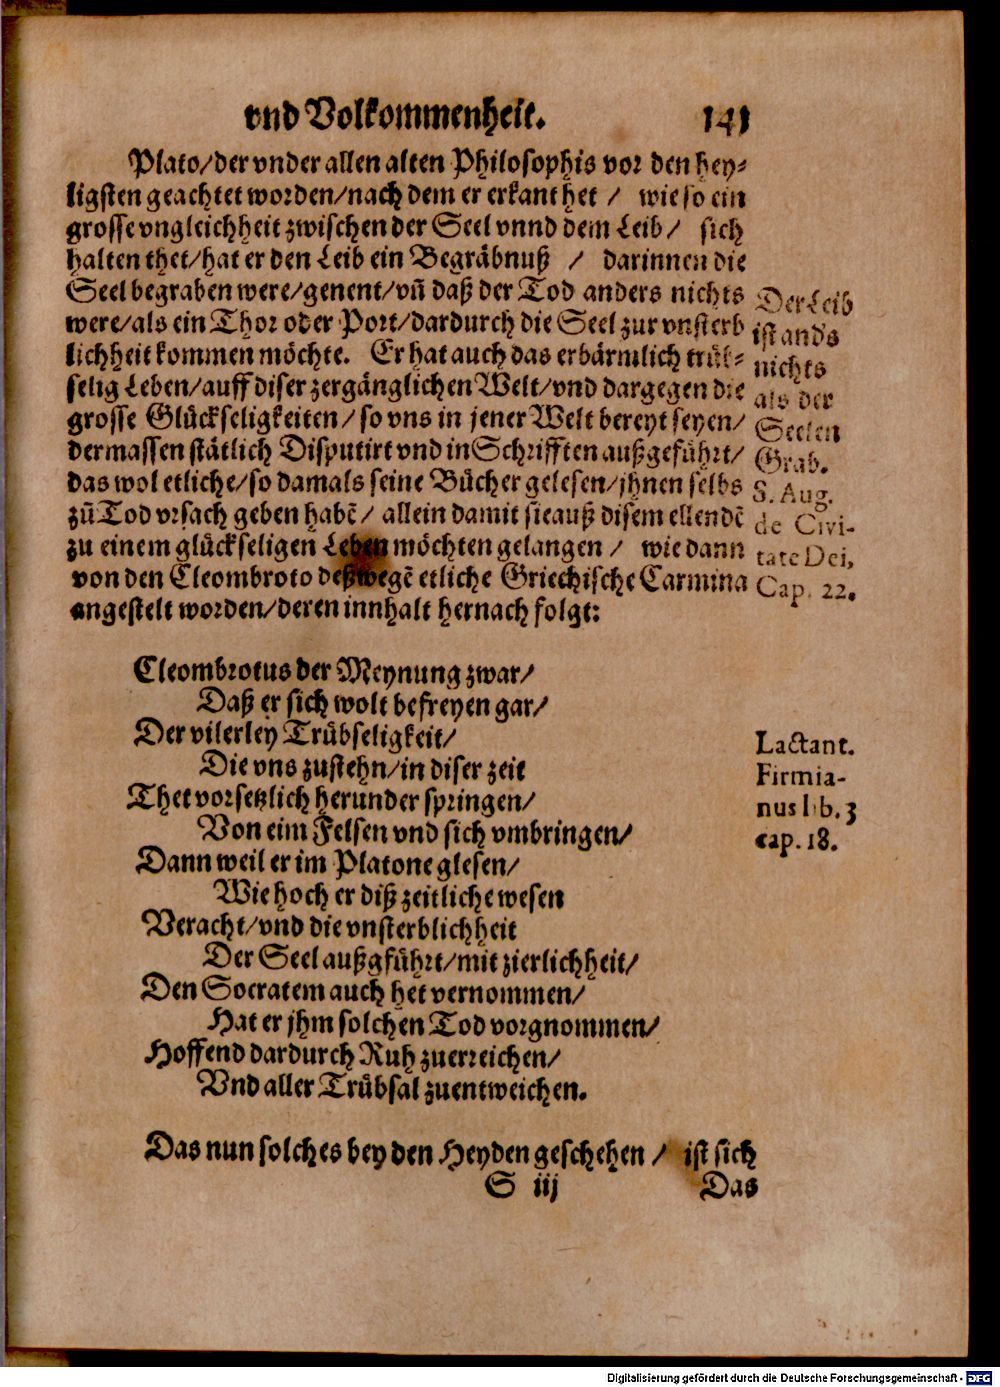 vnd Volkommenheit. 141
Plato/der vnder allen alten Philosophis vor den hey-
ligsten geachtet worden/nach dem er erkant het / wie so ein
grosse vngleichheit zwischen der Seel vnnd dem Leib/ sich
halten thet/hat er den Leib ein Begräbnuß / darinnen die
Seel begraben were/genent/vñ daß der Tod anders nichts
were/als ein Thor oder Port/dardurch die Seel zur vnsterb
lichheit kommen möchte. Er hat auch das erbärmlich trüb-
selig Leben/auff diser zergänglichen Welt/vnd dargegen die
grosse Glückseligkeiten/so vns in jener Welt bereyt seyen/
dermassen stätlich Disputirt vnd in Schrifften außgeführt/
das wol etliche/so damals seine Bücher gelesen/jhnen selbs
zū Tod vrsach geben habē/ allein damit sie auß disem ellendē
zu einem glückseligen Leben möchten gelangen / wie dann
von den Cleombroto deßwegē etliche Griechische Carmina
angestelt worden/deren innhalt hernach folgt:
Der Leib
ist ands
nichts
als der
Seelen
Grab.
S. Aug.
de Civi-
tate Dei,
Cap. 22.
Cleombrotus der Meynung zwar/
Daß er sich wolt befreyen gar/
Der vilerley Trübseligkeit/
Die vns zustehn/in diser zeit
Thet vorsetzlich herunder springen/
Von eim Felsen vnd sich vmbringen/
Dann weil er im Platone glesen/
Wie hoch er diß zeitliche wesen
Veracht/vnd die vnsterblichheit
Der Seel außgführt/mit zierlichheit/
Den Socratem auch het vernommen/
Hat er jhm solchen Tod vorgnommen/
Hoffend dardurch Ruh zuerreichen/
Vnd aller Trübsal zuentweichen.
Lactant.
Firmia-
nus lib. 3
cap. 18.
Das nun solches bey den Heyden geschehen / ist sich
S iij Das
Digitalisierung gefördert durch die Deutsche Forschungsgemeinschaft - DFG